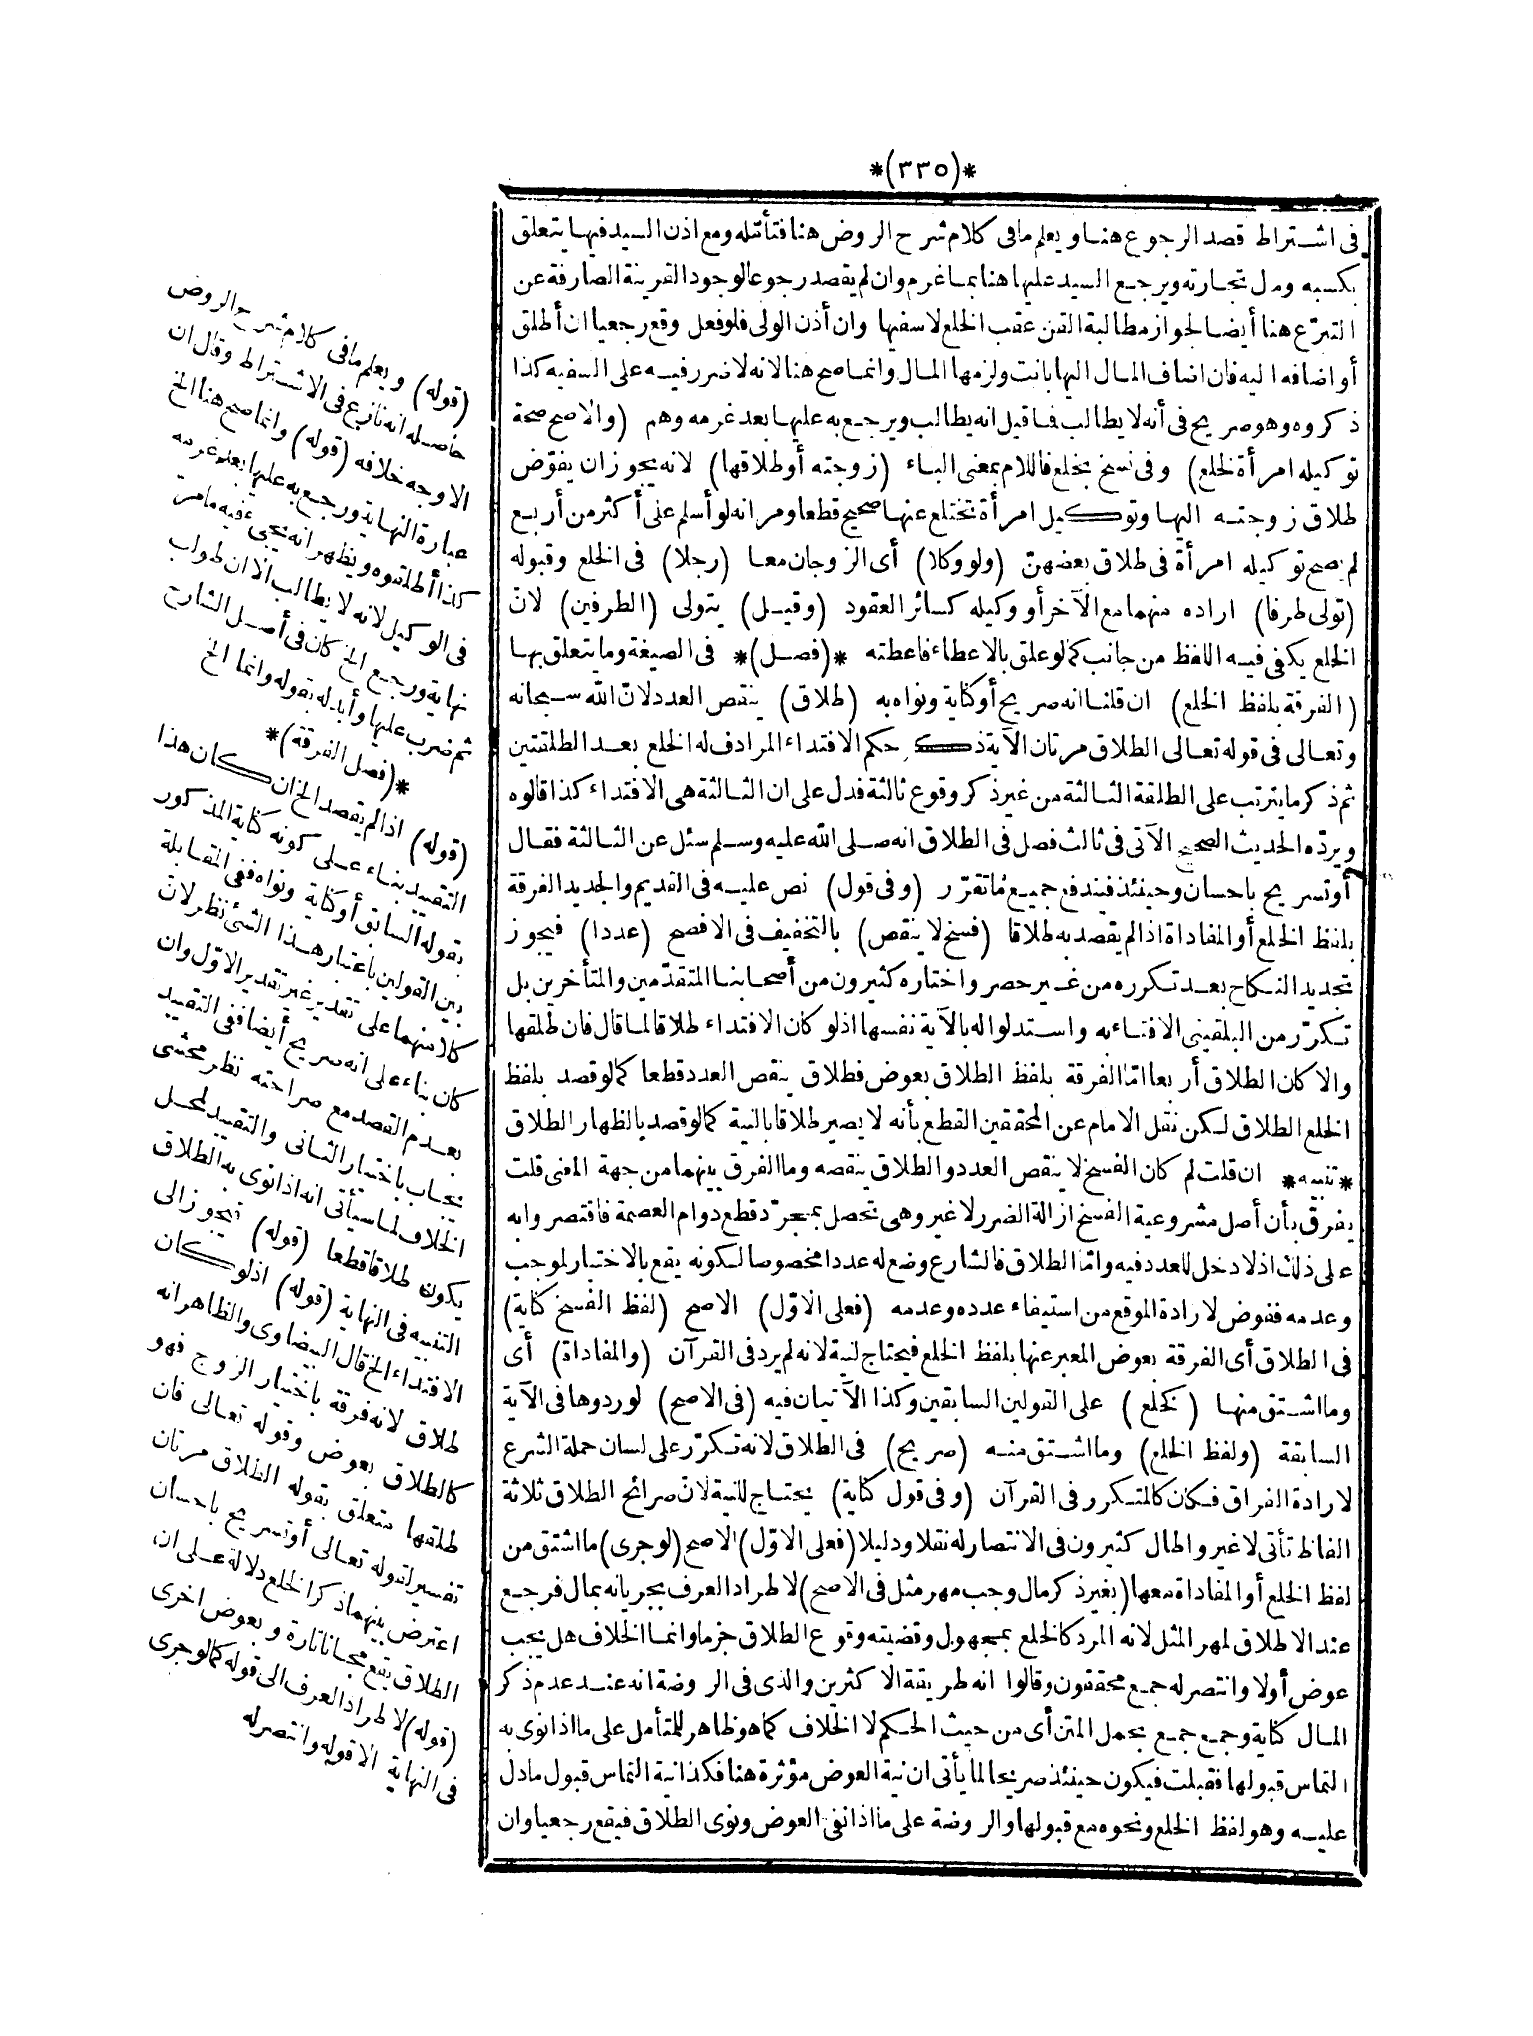 *(٣٣٥)*
فى اشتراط قصد الرجوع هنا ويعلم مافى كلام شرح الروض هنا فتأمّله ومع اذن السيد فيها يتعلق
بكسبه ومال تجارته ويرجع السيد عليها هنا بما غرم وان لم يقصد رجوعا لوجود القرينة الصارفة عن
التبرّع هنا أيضا لجواز مطالبة القن عقب الخلع لا سفيها وان أذن الولى فلو فعل وقع رجعيا ان أطلق
أو اضافه اليه فان اضاف المال اليها بانت ولزمها المال وانما صح هنا لانه لا ضرر فيه على السفيه كذا
ذكروه وهو صريح فى أنه لا يطالب فما قيل انه يطالب ويرجع به عليها بعد غرمه وهم (والاصح صحة
توكيله امرأة لخلع) وفى نسخ بخلع فاللام بمعنى الباء (زوجته أو طلاقها) لانه يجوز ان يفوّض
طلاق زوجته اليها وتوكيل امرأة تختلع عنها صحيح قطعا ومر انه لو أسلم على أكثر من أربع
لم يصح توكيله امرأة فى طلاق بعضهنّ (ولو وكلا) أى الزوجان معا (رجلا) فى الخلع وقبوله
(تولى طرفا) اراده منهما مع الآخر أو وكيله كسائر العقود (وقيل) يتولى (الطرفين) لانّ
الخلع يكفى فيه اللفظ من جانب كما لو علق بالاعطاء فاعطته *(فصل)* فى الصيغة وما يتعلق بها
(الفرقة بلفظ الخلع) ان قلنا انه صريح أو كناية ونواه به (طلاق) ينقص العدد لانّ الله سبحانه
وتعالى فى قوله تعالى الطلاق مرتان الآية ذكر حكم الافتداء المرادف له الخلع بعد الطلقتين
ثم ذكر ما يترتب على الطلقة الثالثة من غير ذكر وقوع ثالثة فدل على ان الثالثة هى الافتداء كذا قالوه
ويردّه الحديث الصحيح الآتى فى ثالث فصل فى الطلاق انه صلى الله عليه وسلم سئل عن الثالثة فقال
أو تسريح باحسان وحينئذ فيندفع جميع ما تقرّر (وفى قول) نص عليه فى القديم والجديد الفرقة
بلفظ الخلع أو المفاداة اذا لم يقصد به طلاقا (فسخ لا ينقص) بالتخفيف فى الافصح (عددا) فيجوز
تجديد النكاح بعد تكرره من غير حصر واختاره كثيرون من أصحابنا المتقدّمين والمتأخرين بل
تكرّر من البلقينى الافتاء به واستدلوا له بالآية نفسها اذ لو كان الافتداء طلاقا لما قال فان طلقها
والا كان الطلاق أربعا امّا الفرقة بلفظ الطلاق بعوض فطلاق ينقص العدد قطعا كما لو قصد بلفظ
الخلع الطلاق لكن نقل الامام عن المحققين القطع بأنه لا يصير طلاقا بالنية كما لو قصد بالظهار الطلاق
*تنبيه* ان قلت لم كان الفسخ لا ينقص العدد والطلاق ينقصه وما الفرق بينهما من جهة المعنى قلت
يفرق بأن أصل مشروعية الفسخ ازالة الضرر لا غير وهى تحصل بمجرّد قطع دوام العصمة فاقتصروا به
على ذلك اذ لا دخل للعدد فيه وامّا الطلاق فالشارع وضع له عددا مخصوصا لكونه يقع بالاختيار لموجب
وعدمه ففوض لارادة الموقع من استيفاء عدده وعدمه (فعلى الاوّل) الاصح (لفظ الفسخ كناية)
فى الطلاق أى الفرقة بعوض المعبر عنها بلفظ الخلع فيحتاج لنية لانه لم يرد فى القرآن (والمفاداة) أى
وما اشتق منها (كخلع) على القولين السابقين وكذا الآتيان فيه (فى الاصح) لورودها فى الآية
السابقة (ولفظ الخلع) وما اشتق منه (صريح) فى الطلاق لانه تكرّر على لسان حملة الشرع
لارادة الفراق فكان كالمتكرر فى القرآن (وفى قول كناية) يحتاج للنية لانّ صرائح الطلاق ثلاثة
الفاظ تأتى لا غير واطال كثيرون فى الانتصار له نقلا ودليلا (فعلى الاوّل) الاصح (لو جرى) ما اشتق من
لفظ الخلع أو المفاداة معها (بغير ذكر مال وجب مهر مثل فى الاصح) لاطراد العرف بجريانه بمال فرجع
عند الاطلاق لمهر المثل لانه المرد كالخلع بمجهول وقضيته وقوع الطلاق جزما وانما الخلاف هل يجب
عوض أولا وانتصر له جمع محققون وقالوا انه طريقة الاكثرين والذى فى الروضة انه عند عدم ذكر
المال كناية وجمع جمع بحمل المتن أى من حيث الحكم لا الخلاف كما هو ظاهر للمتأمل على ما اذا نوى به
التماس قبولها فقبلت فيكون حينئذ صريحا لما يأتى ان نية العوض مؤثرة هنا فكذا نية التماس قبول ما دل
عليه وهو لفظ الخلع ونحوه مع قبولها والروضة على ما اذا نفى العوض ونوى الطلاق فيقع رجعيا وان
(قوله) ويعلم مافى كلام شرح الروض
حاصله انه نازع فى الاشتراط وقال ان
الاوجه خلافه (قوله) وانما صح هنا الخ
عبارة النهاية ورجع به عليها بعد غرمه
كذا أطلقوه ويظهر انه يجىء فيه ما مرّ
فى الوكيل لانه لا يطالب الا ان طولب
نهاية ورجع الخ كان فى أصل الشارح
ثم ضرب عليها وأبدله بقوله وانما الخ
*(فصل الفرقة)*
(قوله) اذا لم يقصد الخ ان كان هذا
التقييد بناء على كونه كناية المذكور
بقوله السابق أو كناية ونواه ففى المقابلة
بين القولين باعتبار هذا الشئ نظر لانّ
كلا منهما على تقدير غير تقدير الاوّل وان
كان بناء على انه صريح أيضا ففى التقييد
بعدم القصد مع صراحته نظر محشى
يجاب باختيار الثانى والتقييد لمحل
الخلاف لما سيأتى انه اذا نوى به الطلاق
يكون طلاقا قطعا (قوله) فيجوز الى
التنبيه فى النهاية (قوله) اذ لو كان
الافتداء الخ قال البيضاوى والظاهر انه
طلاق لانه فرقة باختيار الزوج فهو
كالطلاق بعوض وقوله تعالى فان
طلقها متعلق بقوله الطلاق مرتان
تفسير لقوله تعالى أو تسريح باحسان
اعترض بينهما ذكر الخلع دلالة على ان
الطلاق يقع مجانا تارة وبعوض اخرى
(قوله) لاطراد العرف الى قوله كما لو جرى
فى النهاية الا قوله وانتصر له